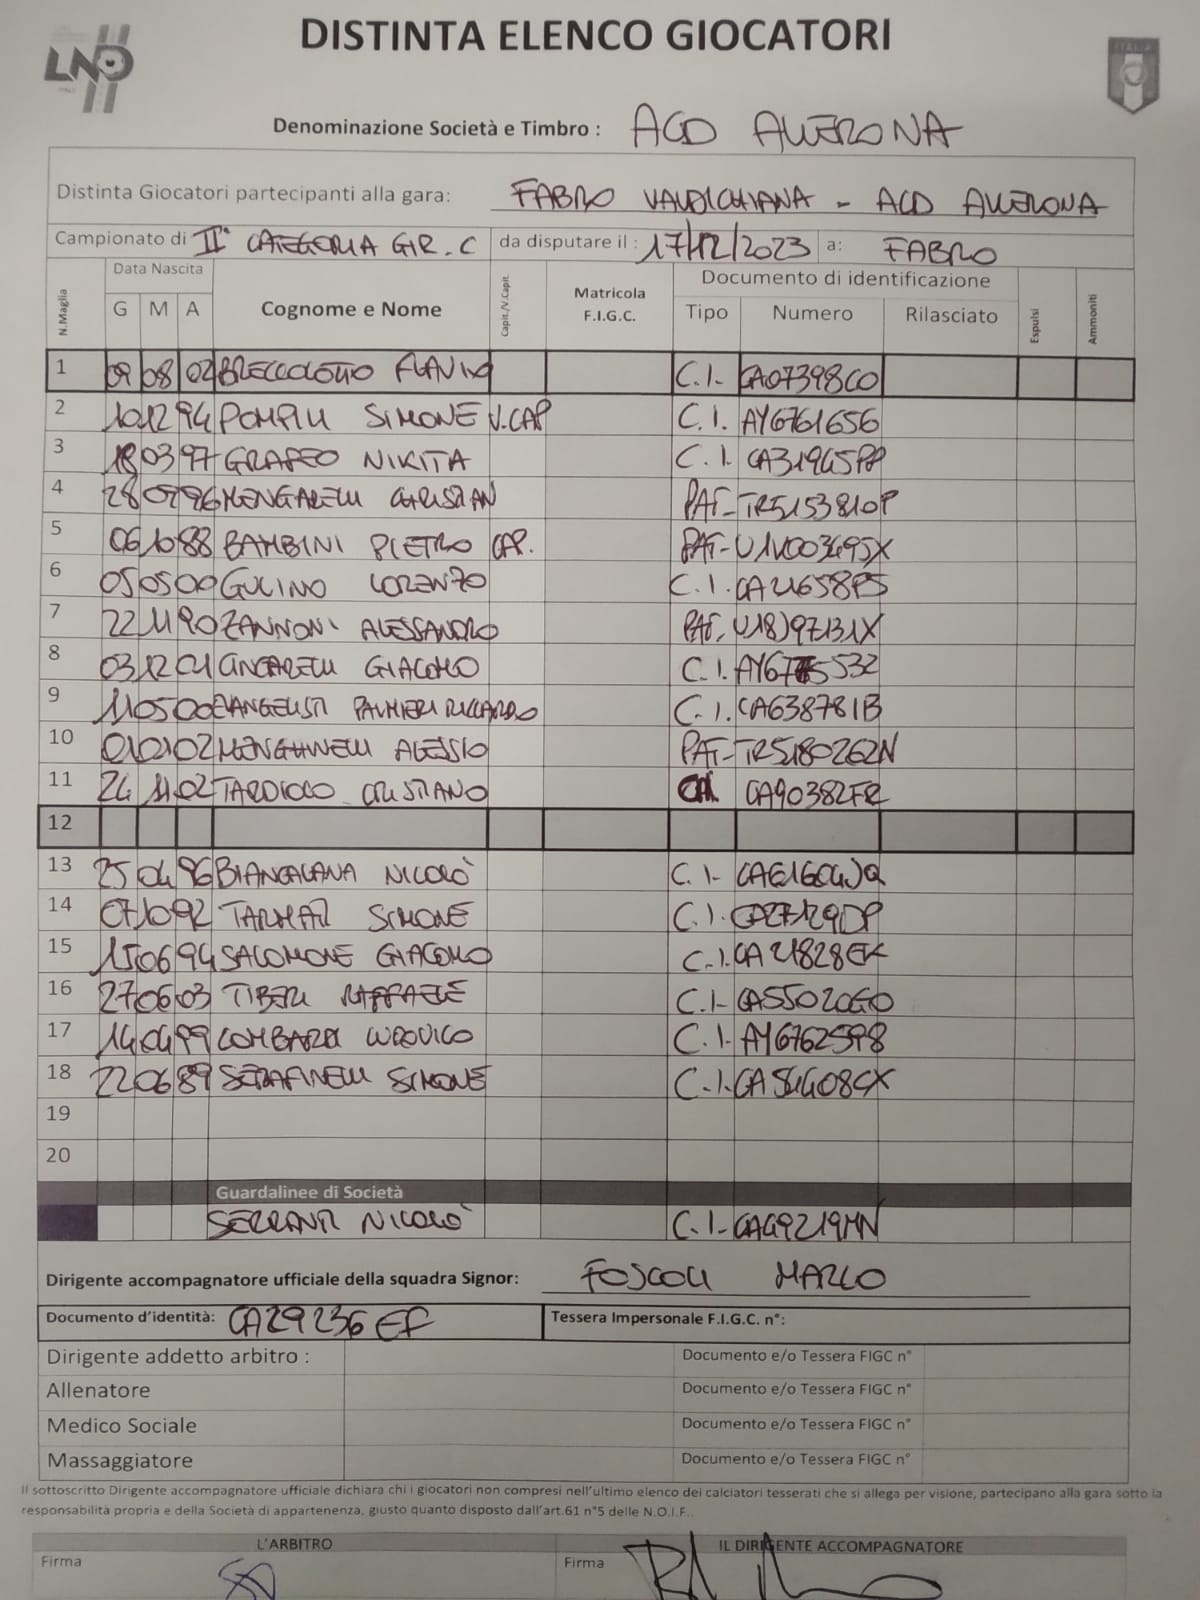 DISTINTA ELENCO GIOCATORI
LND
ITALIA
Denominazione Società e Timbro : ACD ALLERONA
Distinta Giocatori partecipanti alla gara: FABRO VALDICHIANA - ACD ALLERONA
Campionato di II° CATEGORIA GIR. C da disputare il : 17/12/2023 a: FABRO
N.Maglia Data Nascita Cognome e Nome Capit./V.Capit. Matricola F.I.G.C. Documento di identificazione Espulsi Ammoniti
G M A Tipo Numero Rilasciato
1 09 08 02 BRECCOLOTTO FLAVIO C.I. CA07398CO
2 10 12 94 POMPILI SIMONE V.CAP C.I. AY6761656
3 18 03 97 GRAFEO NIKITA C.I. CA31945PP
4 28 07 96 MENGARELLI CHRISTIAN PAT- TR5153810P
5 06 10 88 BAMBINI PIETRO CAP. PAT- U1V003495X
6 05 05 00 GULINO LORENZO C.I. CA21658PS
7 22 11 90 ZANNONI ALESSANDRO PAT. U18J97131X
8 03 12 01 CINGARELLI GIACOMO C.I. AY6775532
9 11 05 00 EVANGELISTI PALMIERI RICCARDO C.I. CA63878IB
10 01 01 02 MENGHINELLI ALESSIO PAT- TR5180262N
11 24 11 02 TARDIOLO CRISTIANO CA90382FR
12
13 25 04 96 BIANCALANA NICOLÒ C.I- CAE1604JQ
14 07 10 92 SIMONE C.I. CA27129DP
15 15 06 94 SALOMONE GIACOMO C.I. CA21828EK
16 27 06 03 TIBERI RAFFAELE C.I- CA55020GO
17 14 04 99 LOMBARDI LUDOVICO C.I- AY6762598
18 22 06 89 SERAFINELLI SIMONE C.I. CA54408CX
19
20
Guardalinee di Società
SERRANTI NICOLÒ C.I- CA49219MN
Dirigente accompagnatore ufficiale della squadra Signor: FOSCOLI MARCO
Documento d'identità: CA29236EF Tessera Impersonale F.I.G.C. n°:
Dirigente addetto arbitro : Documento e/o Tessera FIGC n°
Allenatore Documento e/o Tessera FIGC n°
Medico Sociale Documento e/o Tessera FIGC n°
Massaggiatore Documento e/o Tessera FIGC n°
Il sottoscritto Dirigente accompagnatore ufficiale dichiara chi i giocatori non compresi nell'ultimo elenco dei calciatori tesserati che si allega per visione, partecipano alla gara sotto la
responsabilità propria e della Società di appartenenza, giusto quanto disposto dall'art.61 n°5 delle N.O.I.F..
L'ARBITRO IL DIRIGENTE ACCOMPAGNATORE
Firma Firma